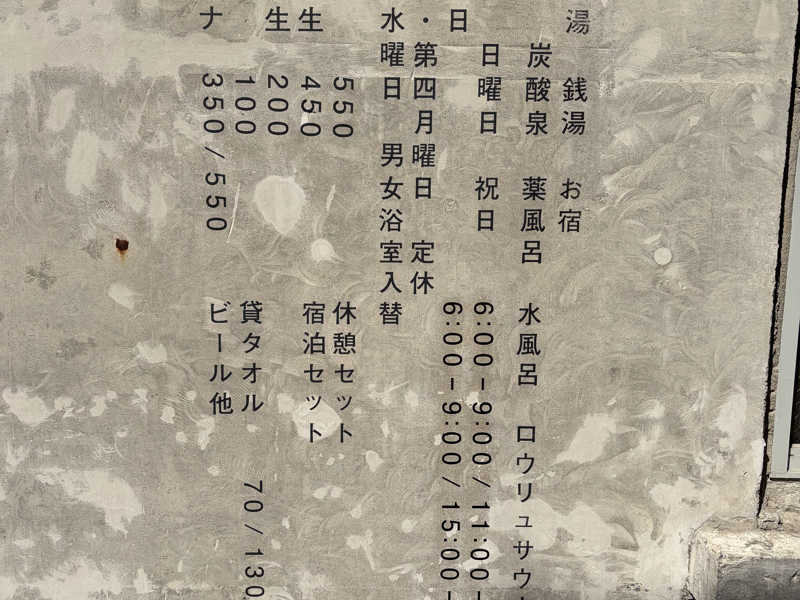 湯 銭湯 お宿
炭酸泉 薬風呂 水風呂 ロウリュサウ
日曜日 祝日 6:00-9:00/11:00-
日 6:00-9:00/15:00-
・第四月曜日 定休
水曜日 男女浴室入替
550 休憩セット
生 450 宿泊セット
生 200
100 貸タオル 70/130
ナ 350/550 ビール他